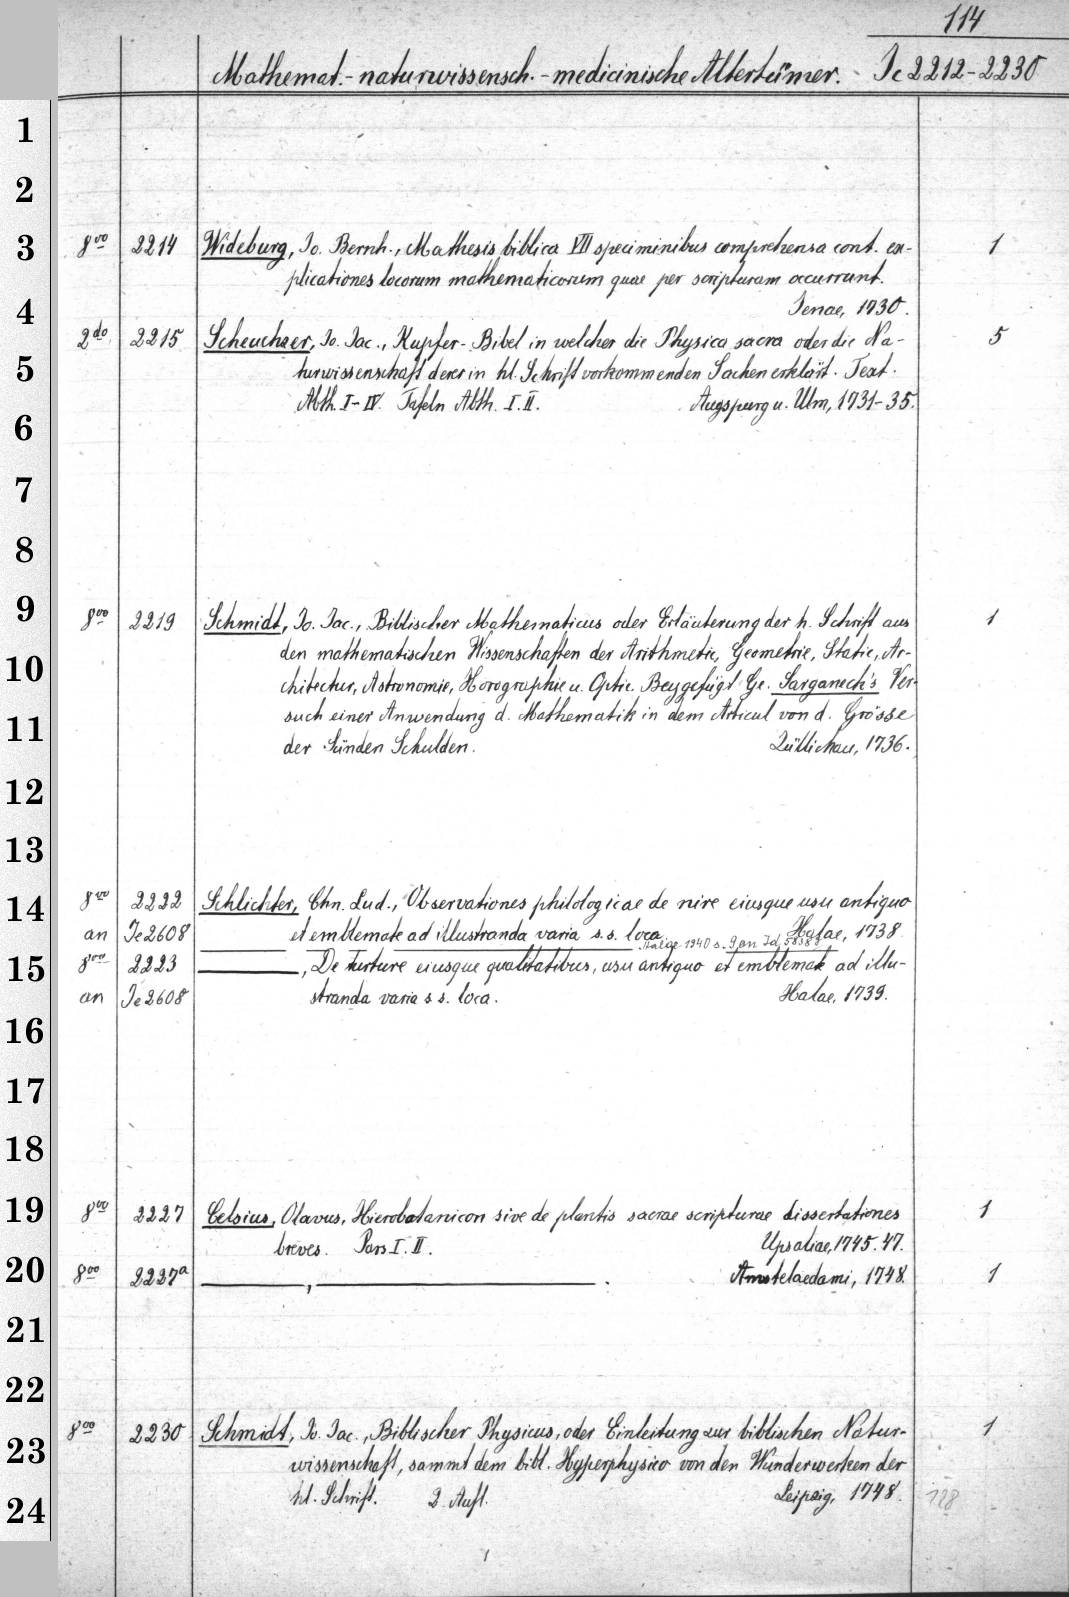 114
Mathemat.-naturwissensch.-medicinische Altertümer. Ic 2212-2230
1
2
3 8vo 2214 Wideburg, Jo. Bernh., Mathesis biblica VII speciminibus comprehensa cont. ex- 1
plicationes locorum mathematicorum quae per scripturam occurrunt.
4 Jenae, 1730.
2do 2215 Scheuchzer, Jo. Jac., Kupfer-Bibel in welcher die Physica sacra oder die Na- 5
5 turwissenschaft derer in hl. Schrift vorkommenden Sachen erklärt. Text.
Abth. I-IV. Tafeln Abth. I. II. Augspurg u. Ulm, 1731-35.
6
7
8
9 8vo 2219 Schmidt, Jo. Jac., Biblischer Mathematicus oder Erläuterung der h. Schrift aus 1
den mathematischen Wissenschaften der Arithmetic, Geometrie, Static, Ar-
10 chitectur, Astronomie, Horographie u. Optic. Beygefügt Ge. Sarganeck's Ver-
11 such einer Anwendung d. Mathematik in dem Articul von d. Grösse
der Sünden Schulden. Züllichau, 1736.
12
13
14 8vo 2222 Schlichter, Chn. Lud., Observationes philologicae de nire eiusque usu antiquo
an Ie 2608 et emblemate ad illustranda varia s.s. loca Halae, 1738
Halae 1940 s. 9 an Id
15 8vo 2223 ———, De turture eiusque qualitatibus, usu antiquo et emblemate ad illu-
an Ie 2608 stranda varia s s. loca. Halae, 1739.
16
17
18
19 8vo 2227 Celsius, Olavus, Hierobotanicon sive de plantis sacrae scripturae dissertationes 1
breves. Pars I. II. Upsaliae, 1745. 47.
20 8vo 2227a ———, ———. Amstelaedami, 1748. 1
21
22
8vo 2230 Schmidt, Jo. Jac., Biblischer Physicus, oder Einleitung zur biblischen Natur- 1
23 wissenschaft, sammt dem bibl. Hyperphysico von den Wunderwerken der
24 hl. Schrift. 2 Aufl. Leipzig, 1748. 128